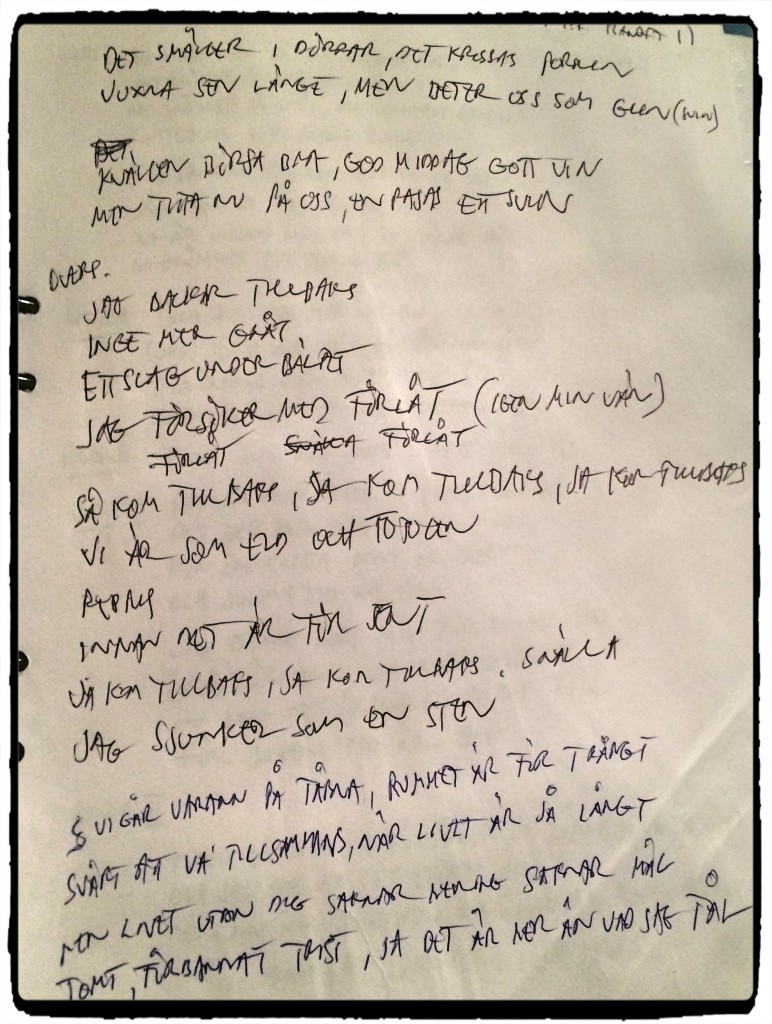 DET SMÄLLER I DÖRRAR, DET KROSSAS PORSLIN
VUXNA SEN LÄNGE, MEN BETER OSS SOM
KVÄLLEN BÖRJA BRA, GOD MIDDAG GOTT VIN
MEN TITTA NU PÅ OSS, EN PAJAS ETT SVIN
JAG BACKAR TILLBAKS
INGE MER GRÅT
ETT SLAG UNDER BÄLTET
JAG FÖRSÖKER MED FÖRLÅT (IGEN MIN VÄN)
FÖRLÅT SNÄLLA FÖRLÅT
SÅ KOM TILLBAKS, SÅ KOM TILLBAKS, SÅ KOM TILLBAKS
VI ÄR SOM ELD OCH
INNAN DET ÄR FÖR SENT
SÅ KOM TILLBAKS, SÅ KOM TILLBAKS. SNÄLLA
JAG SJUNKER SOM EN STEN
VI GÅR VARANN PÅ TÅRNA, RUMMET ÄR FÖR TRÅNGT
SVÅRT ATT VA' TILLSAMMANS, NÄR LIVET ÄR SÅ LÅNGT
MEN LIVET UTAN DIG SAKNAR MENING SAKNAR MÅL
TOMT, FÖRBANNAT TRIST, JA DET ÄR MER ÄN VAD JAG TÅL